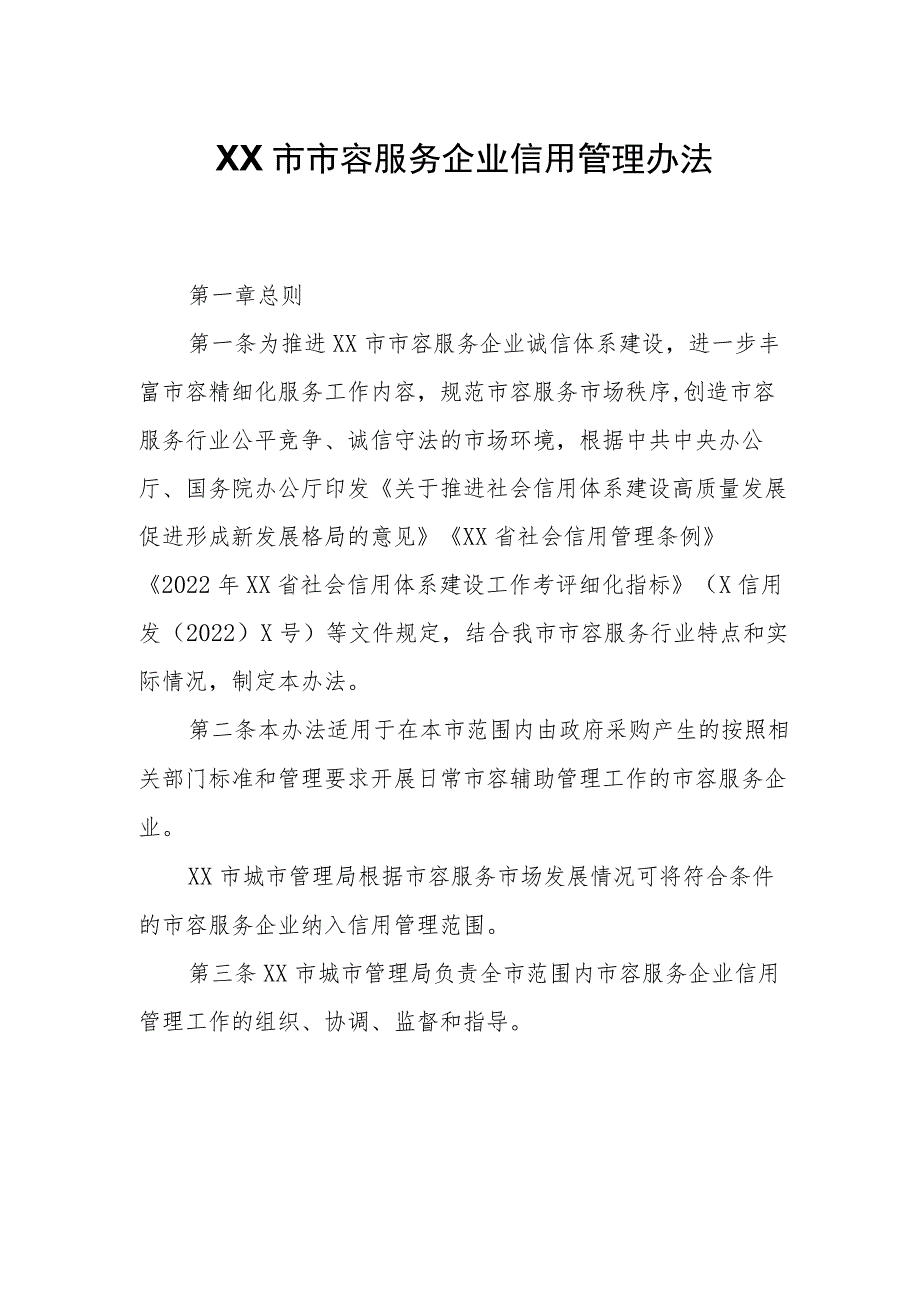 XX 市市容服务企业信用管理办法
第一章总则
第一条为推进 XX 市市容服务企业诚信体系建设，进一步丰
富市容精细化服务工作内容，规范市容服务市场秩序,创造市容
服务行业公平竞争、诚信守法的市场环境，根据中共中央办公
厅、国务院办公厅印发《关于推进社会信用体系建设高质量发展
促进形成新发展格局的意见》《XX 省社会信用管理条例》
《2022 年 XX 省社会信用体系建设工作考评细化指标》（X 信用
发（2022）X 号）等文件规定，结合我市市容服务行业特点和实
际情况，制定本办法。
第二条本办法适用于在本市范围内由政府采购产生的按照相
关部门标准和管理要求开展日常市容辅助管理工作的市容服务企
业。
XX 市城市管理局根据市容服务市场发展情况可将符合条件
的市容服务企业纳入信用管理范围。
第三条 XX 市城市管理局负责全市范围内市容服务企业信用
管理工作的组织、协调、监督和指导。